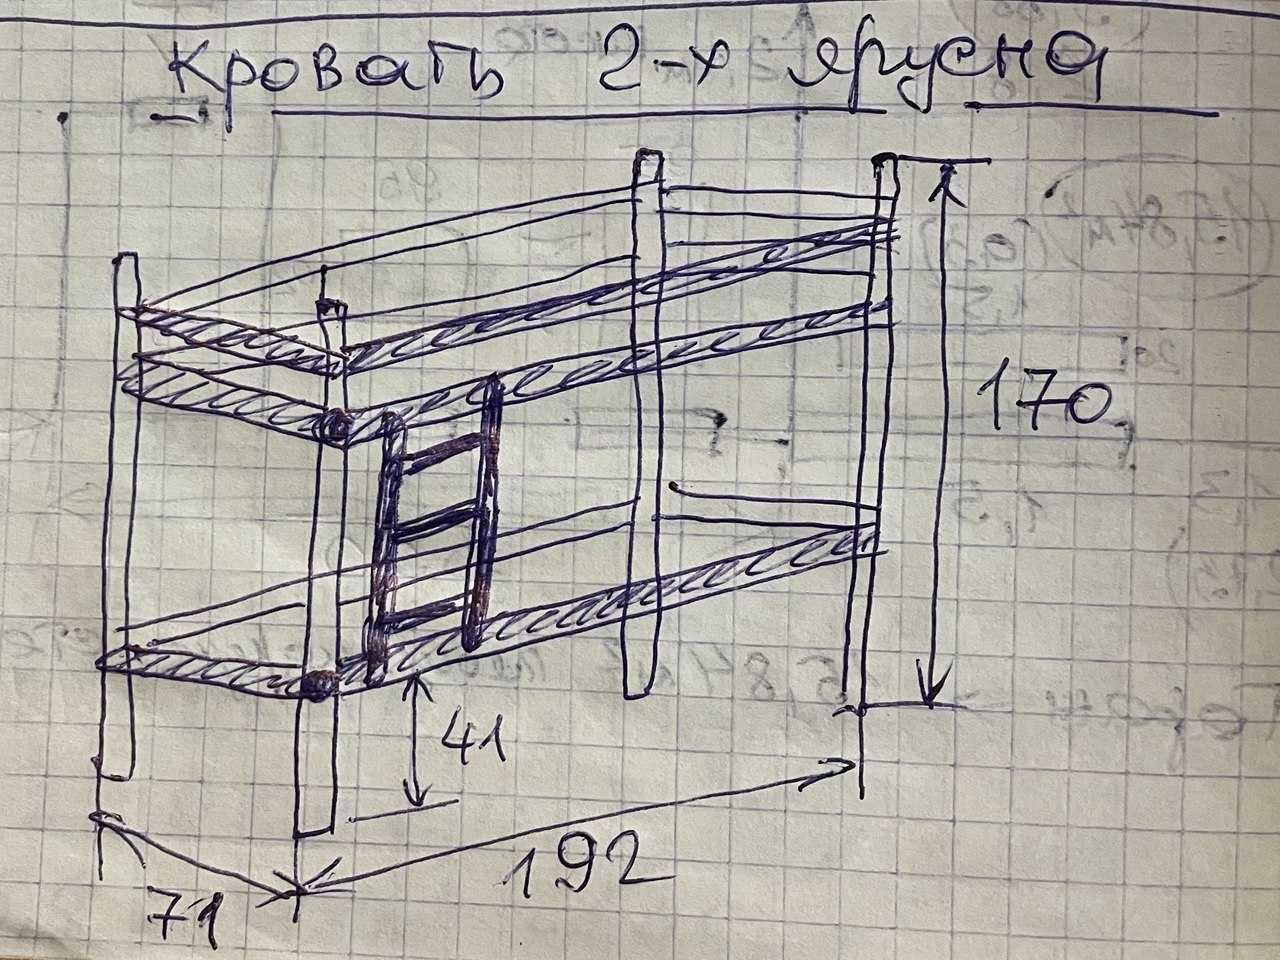 Кровать 2-х ярусна
170
41
192
71